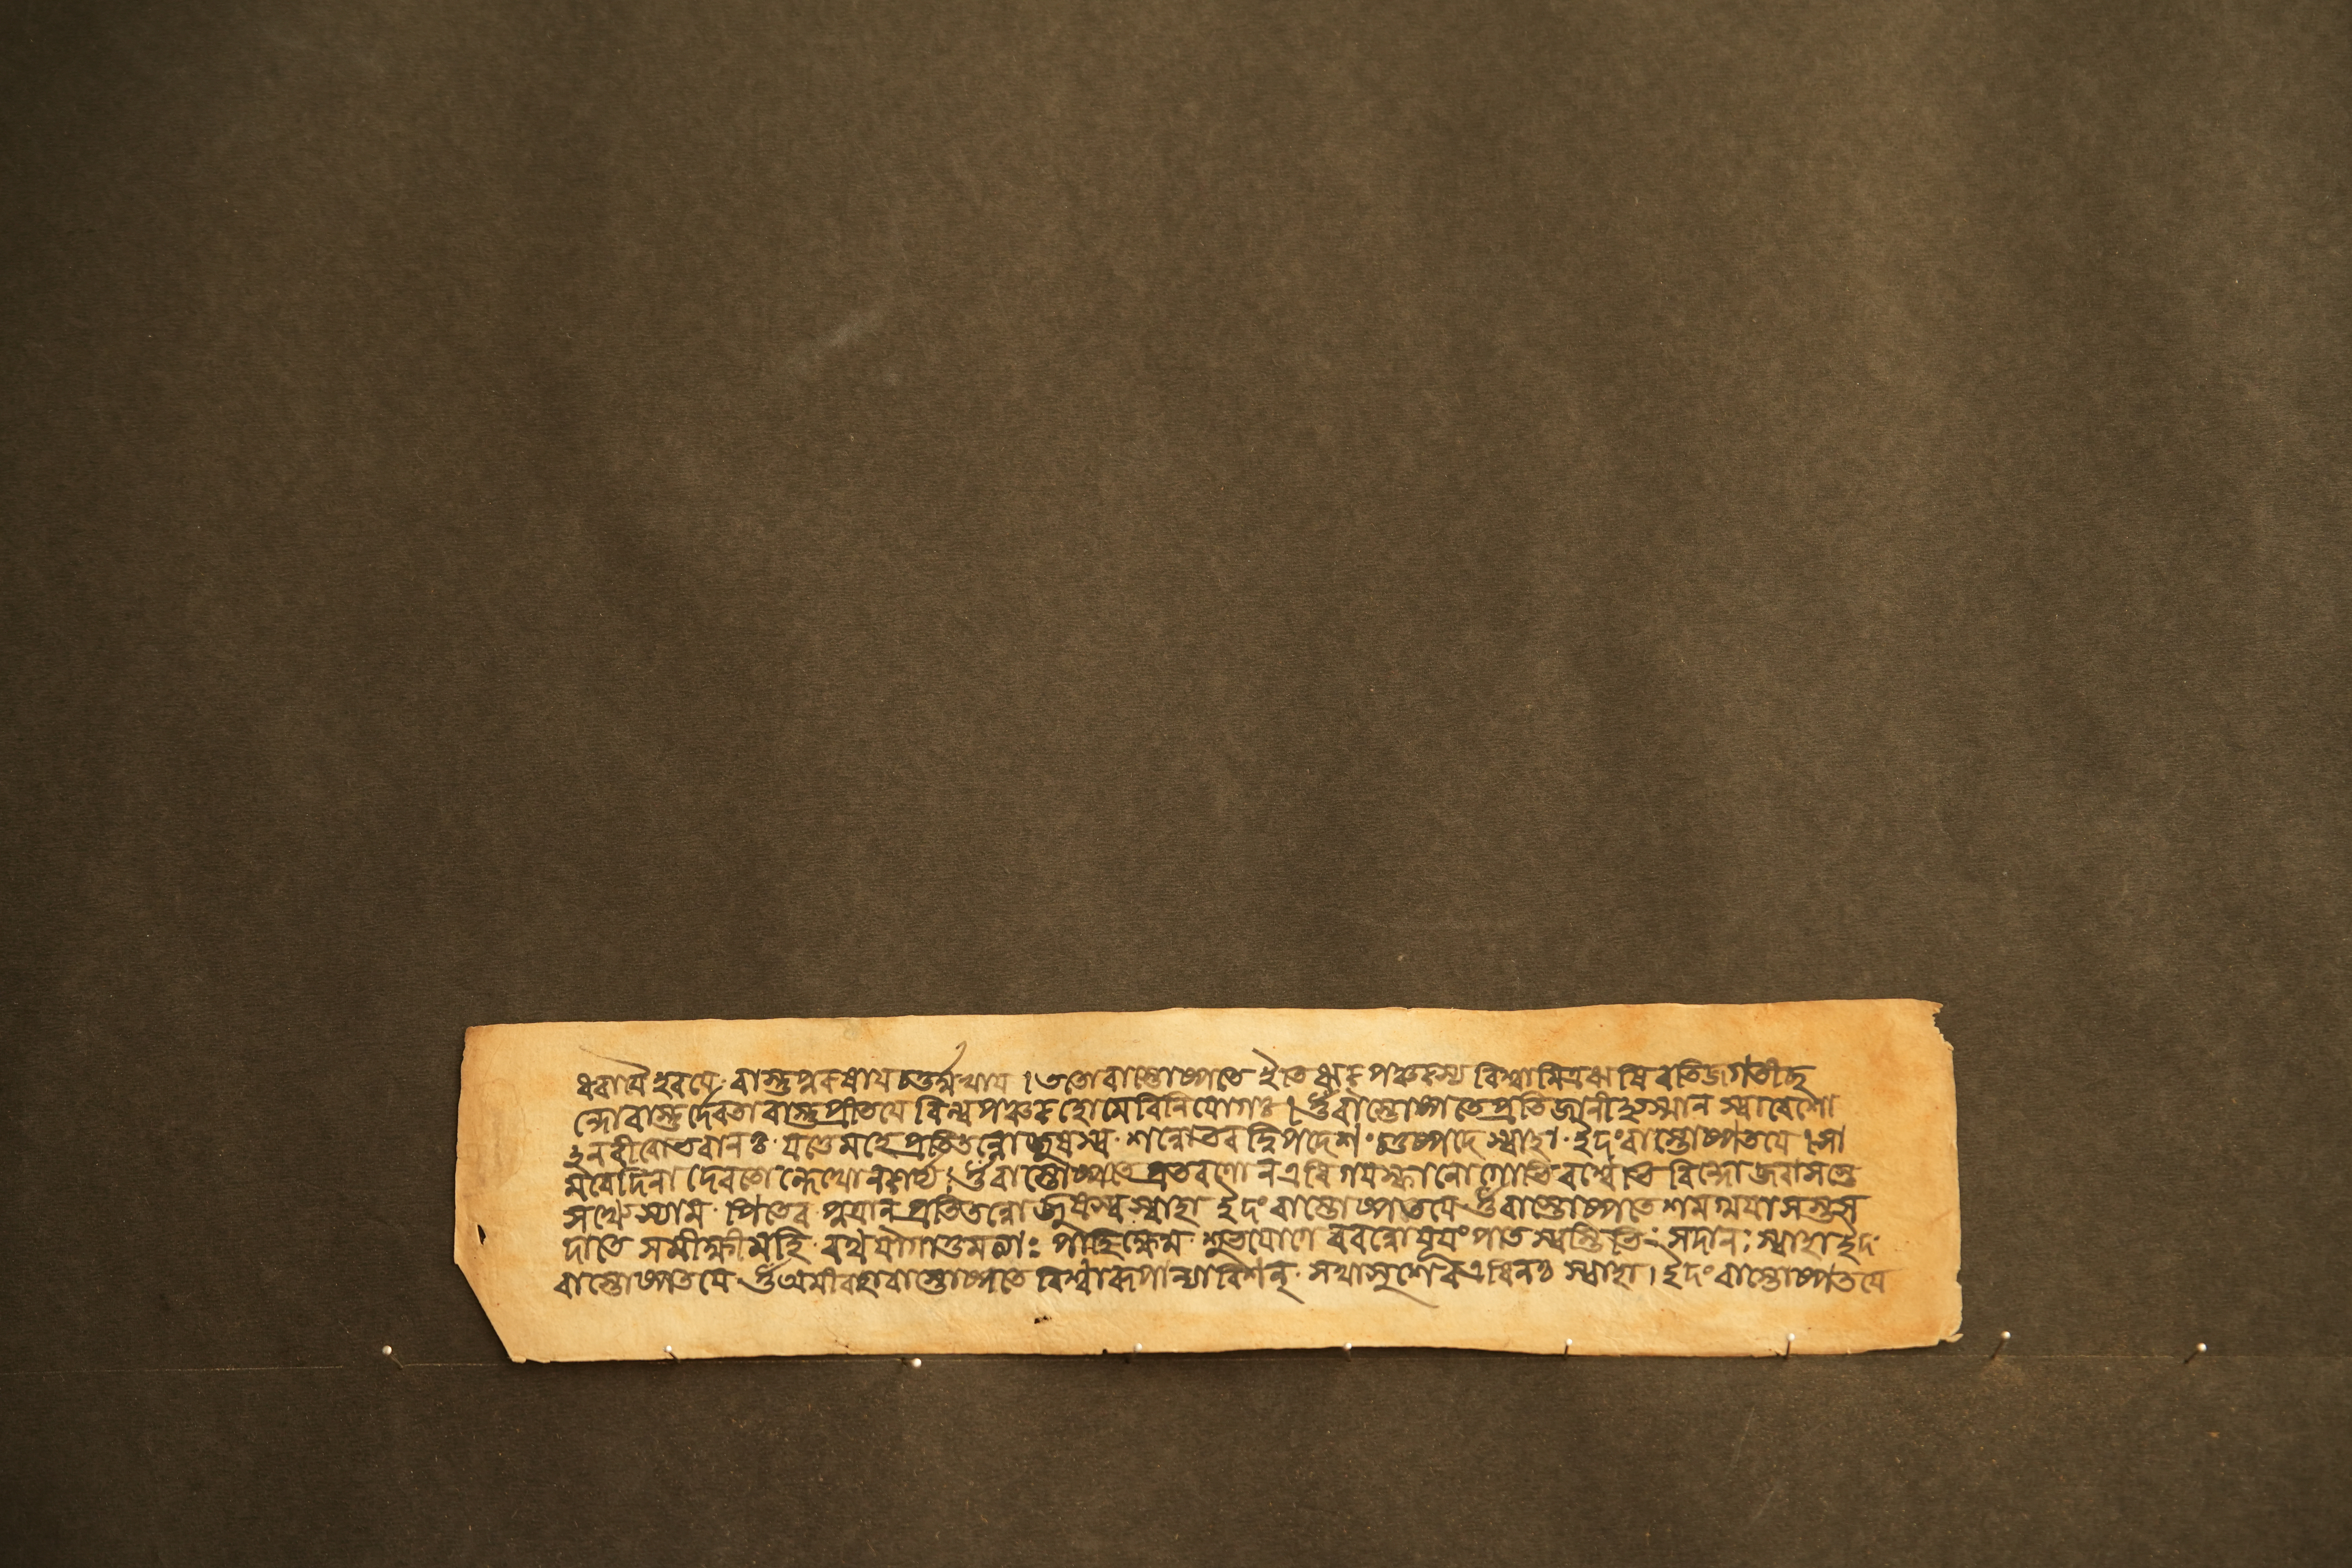 ধরায়ৈ হৰয়ে · বাস্তুপুৰুষায চতুর্ম্মুখায । ততোবাস্তোষ্পতে ইতি ঋক্ পঞ্চকস্য বিশ্বামিত্রঋষি ৰতিজগতীছ
ন্দোবাস্তুর্দেবতা বাস্তুপ্রীতযে বিল্বপঞ্চক হোমেবিনিযোগঃ । ওঁ বাস্তোষ্পতেপ্রতিজানীহ্যস্মান স্বাবেশো
অনমীবোভবানঃ · যত্তেমহেপ্রতিতন্নোজুষস্ব · শন্নোভব দ্বিপদেশং চতুষ্পদে স্বাহা · ইদং বাস্তোষ্পতযে । সা
ওঁ বাস্তোষ্পতে প্রতরণোনএধি গযস্ফানোগোভিৰশ্বেভি ৰিন্দো অজরাসস্তে
সখ্যেস্যাম · পিতেব পুত্রান প্রতিতন্নোজুষস্ব স্বাহা ইদং বাস্তোষ্পতযে ওঁ বাস্তোষ্পতে শমগ্ময়া সংস
দাতে সক্ষীমহি · ৰণ্বযাগাতুমত্যাঃ পাহিক্ষেম · উতযোগে বরন্নোযূযং পাত স্বস্তিভিঃ সদানঃ স্বাহা ইদং
বাস্তোষ্পতযে ওঁ অমীবহাবাস্তোষ্পতে বিশ্বাৰূপান্যাবিশন্ · সখাসুশেবএধিনঃ স্বাহা । ইদং বাস্তোষ্পতযে